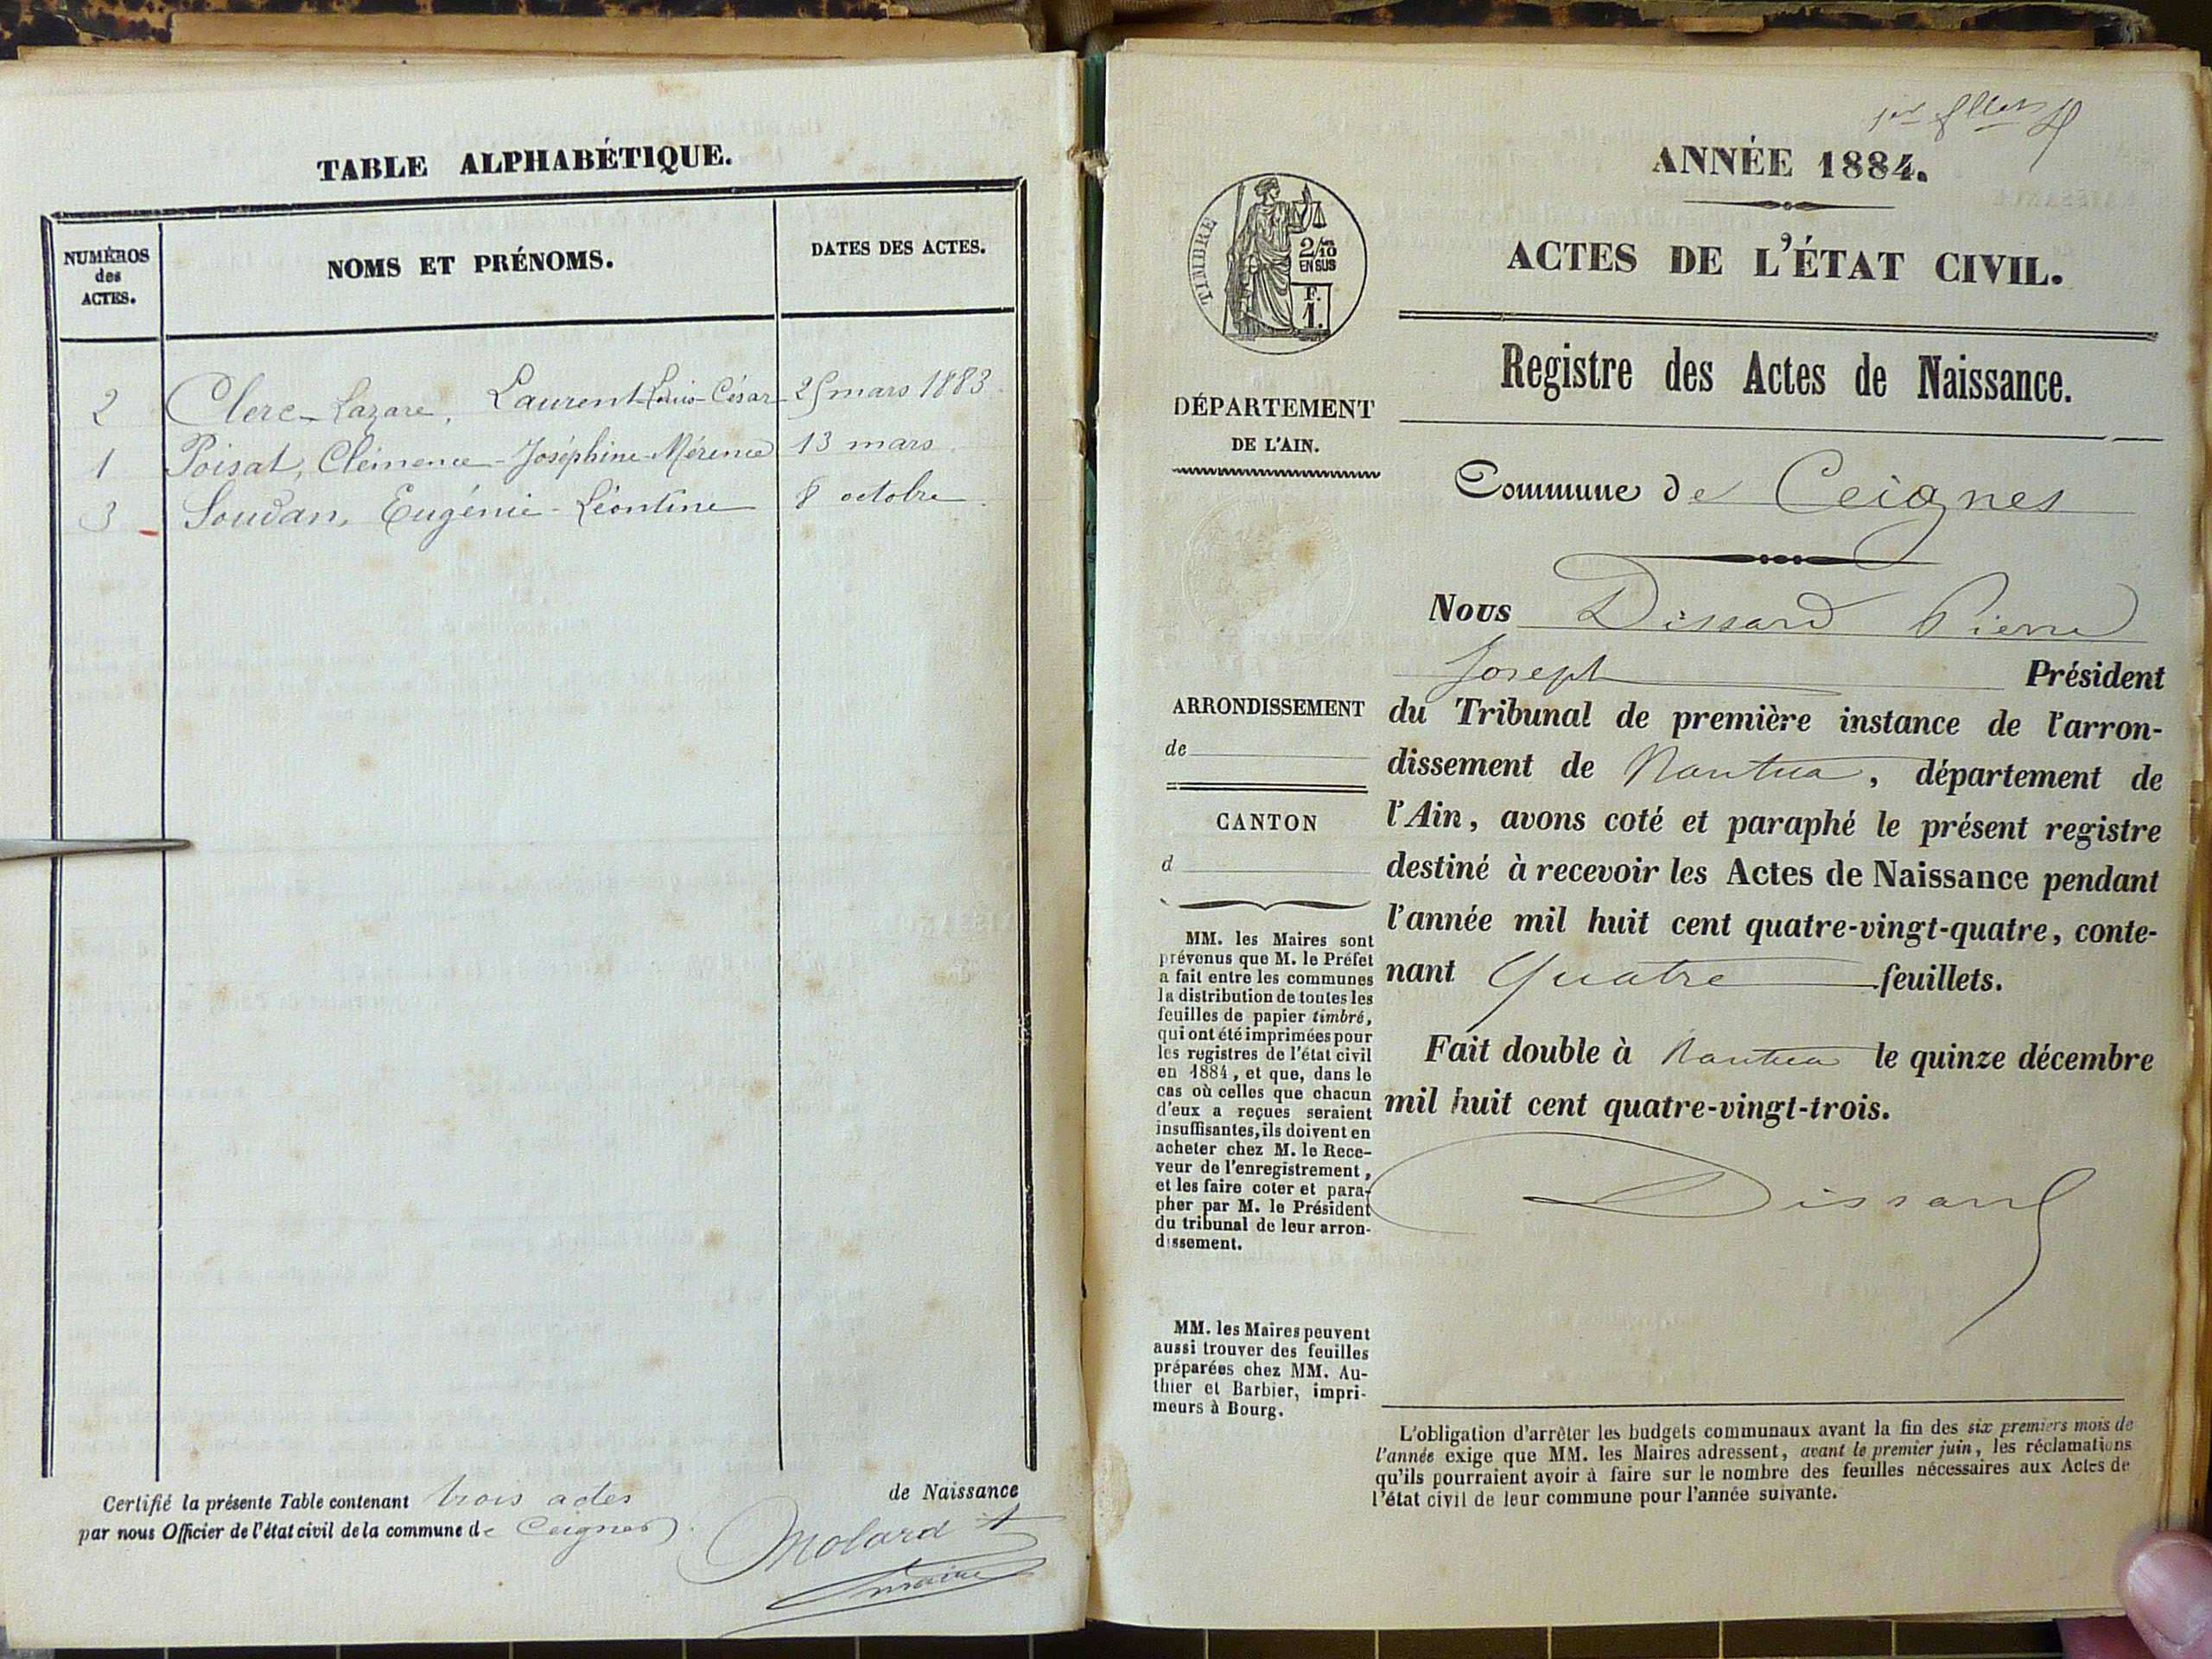 TABLE ALPHABÉTIQUE.
NUMÉROS
des
ACTES.
NOMS ET PRÉNOMS.
DATES DES ACTES.
2 Clerc-Lazare, Laurent-Louis-César 25 mars 1883
1 Poisat, Clémence-Joséphine-Mérence 13 mars
3 Soudan, Eugénie-Léontine 8 octobre
Certifié la présente Table contenant trois actes de Naissance
par nous Officier de l'état civil de la commune de Ceignes.
Molard
maire
1er
ANNÉE 1884.
ACTES DE L'ÉTAT CIVIL.
Registre des Actes de Naissance.
TIMBRE
2/10
EN SUS
F.
1.
DÉPARTEMENT
DE L'AIN.
ARRONDISSEMENT
de
CANTON
d
MM. les Maires sont
prévenus que M. le Préfet
a fait entre les communes
la distribution de toutes les
feuilles de papier timbré,
qui ont été imprimées pour
les registres de l'état civil
en 1884, et que, dans le
cas où celles que chacun
d'eux a reçues seraient
insuffisantes, ils doivent en
acheter chez M. le Rece-
veur de l'enregistrement,
et les faire coter et para-
pher par M. le Président
du tribunal de leur arron-
dissement.
MM. les Maires peuvent
aussi trouver des feuilles
préparées chez MM. Au-
thier et Barbier, impri-
meurs à Bourg.
Commune de Ceignes
Nous Dissard Pierre
Joseph Président
du Tribunal de première instance de l'arron-
dissement de Nantua, département de
l'Ain, avons coté et paraphé le présent registre
destiné à recevoir les Actes de Naissance pendant
l'année mil huit cent quatre-vingt-quatre, conte-
nant Quatre feuillets.
Fait double à Nantua le quinze décembre
mil huit cent quatre-vingt-trois.
Dissard
L'obligation d'arrêter les budgets communaux avant la fin des six premiers mois de
l'année exige que MM. les Maires adressent, avant le premier juin, les réclamations
qu'ils pourraient avoir à faire sur le nombre des feuilles nécessaires aux Actes de
l'état civil de leur commune pour l'année suivante.